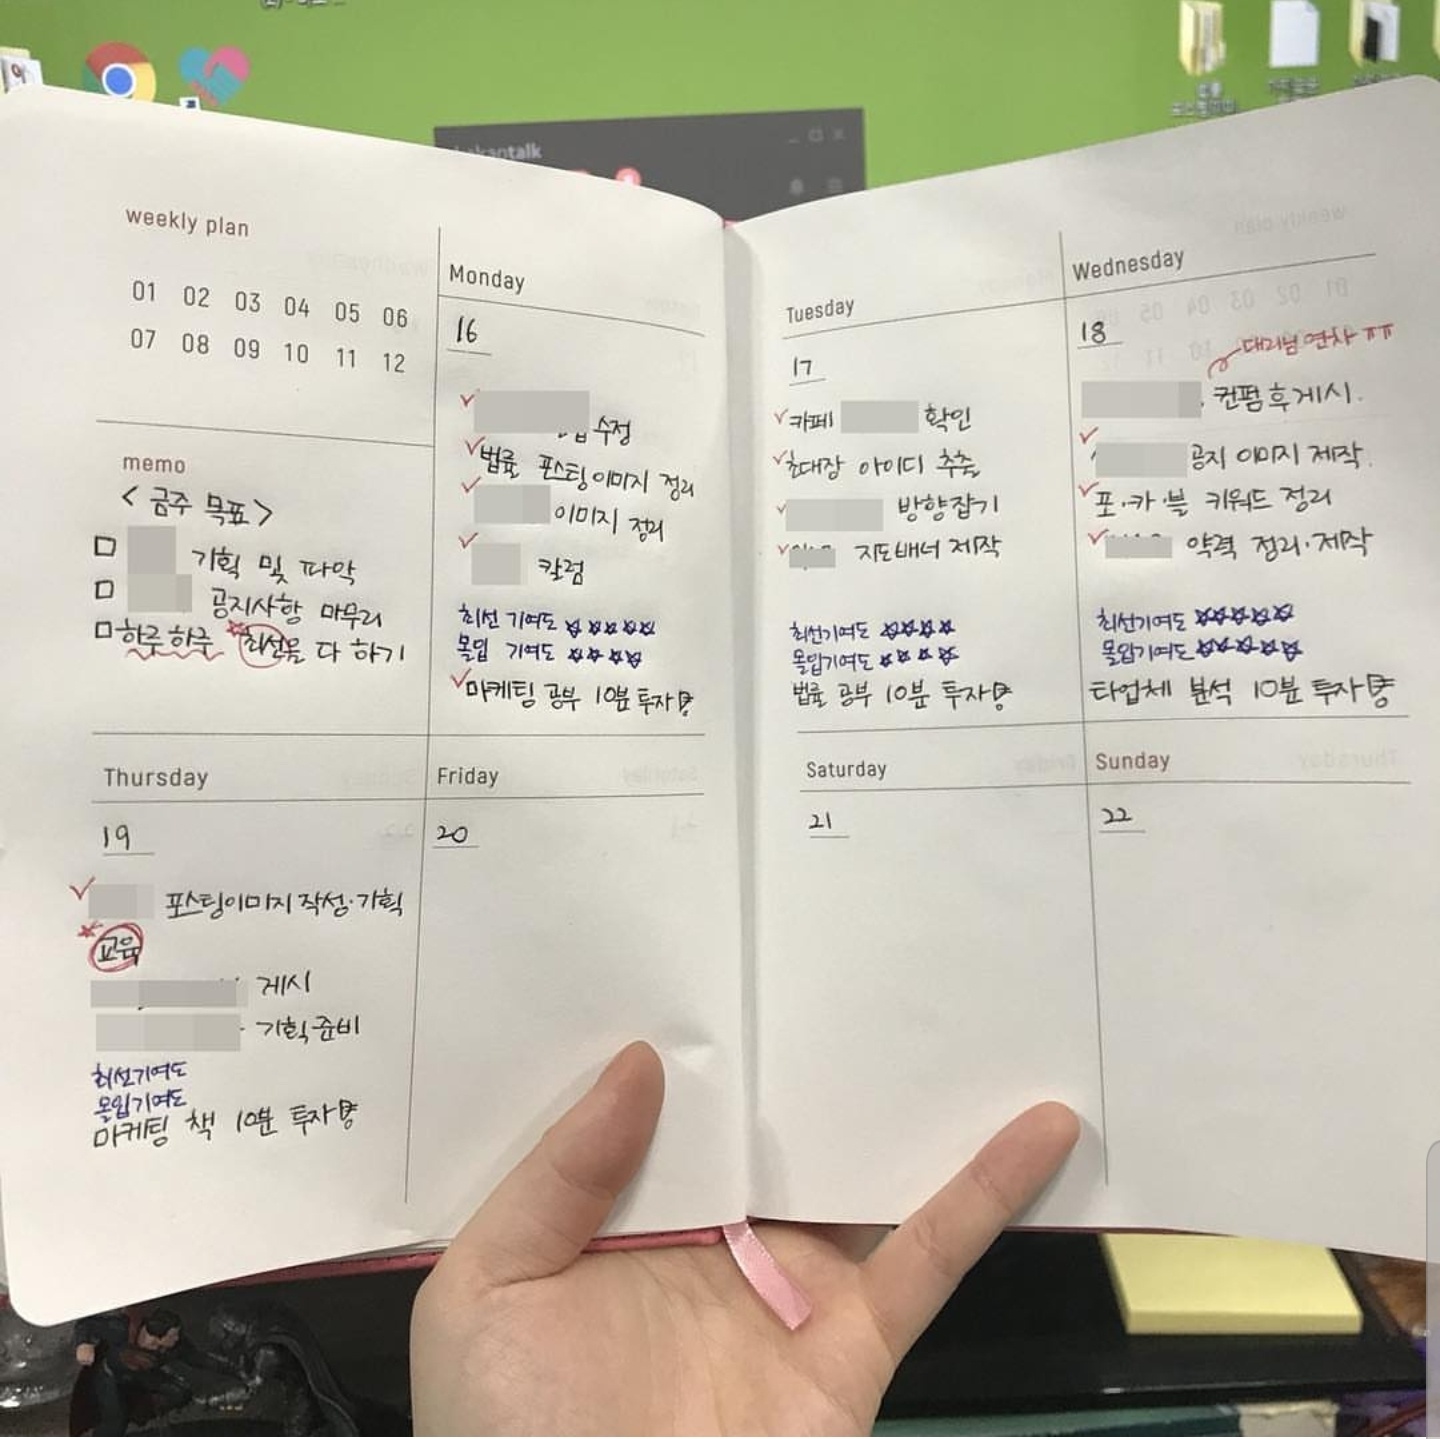 weekly plan
01 02 03 04 05 06
07 08 09 10 11 12
memo
<금주 목표>
기획 및 파악
공지사항 마무리
하루하루 최선을 다 하기
Monday
16
수정
법률 포스팅이미지 정리
이미지 정리
칼럼
최선 기여도 ☆☆☆☆☆
몰입 기여도 ☆☆☆☆
마케팅 공부 10분 투자
Tuesday
17
카페 확인
초대장 아이디 추출
방향잡기
지도배너 제작
최선기여도 ☆☆☆☆
몰입기여도 ☆☆☆☆
법률 공부 10분 투자
Wednesday
18
대리님 연차 ㅠㅠ
컨펌 후 게시.
공지 이미지 제작.
포·카·블 키워드 정리
약력 정리·제작
최선기여도 ☆☆☆☆☆
몰입기여도 ☆☆☆☆☆
타업체 분석 10분 투자
Thursday
19
포스팅이미지 작성·기획
교육
게시
기획준비
최선기여도
몰입기여도
마케팅 책 10분 투자
Friday
20
Saturday
21
Sunday
22